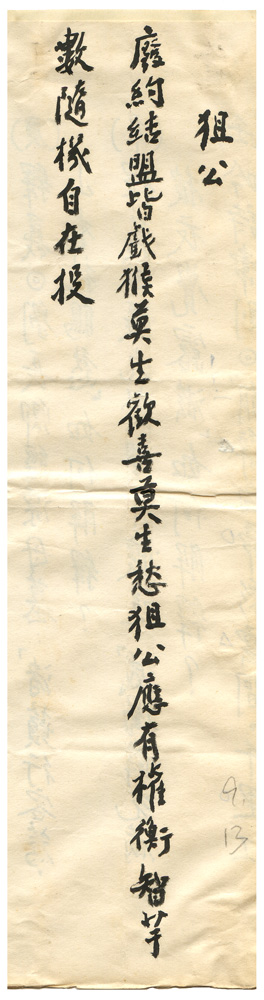 狙公
廢約結盟皆戲猴莫生歡喜莫生愁狙公應有權衡智芧
數隨機自在投
9.13